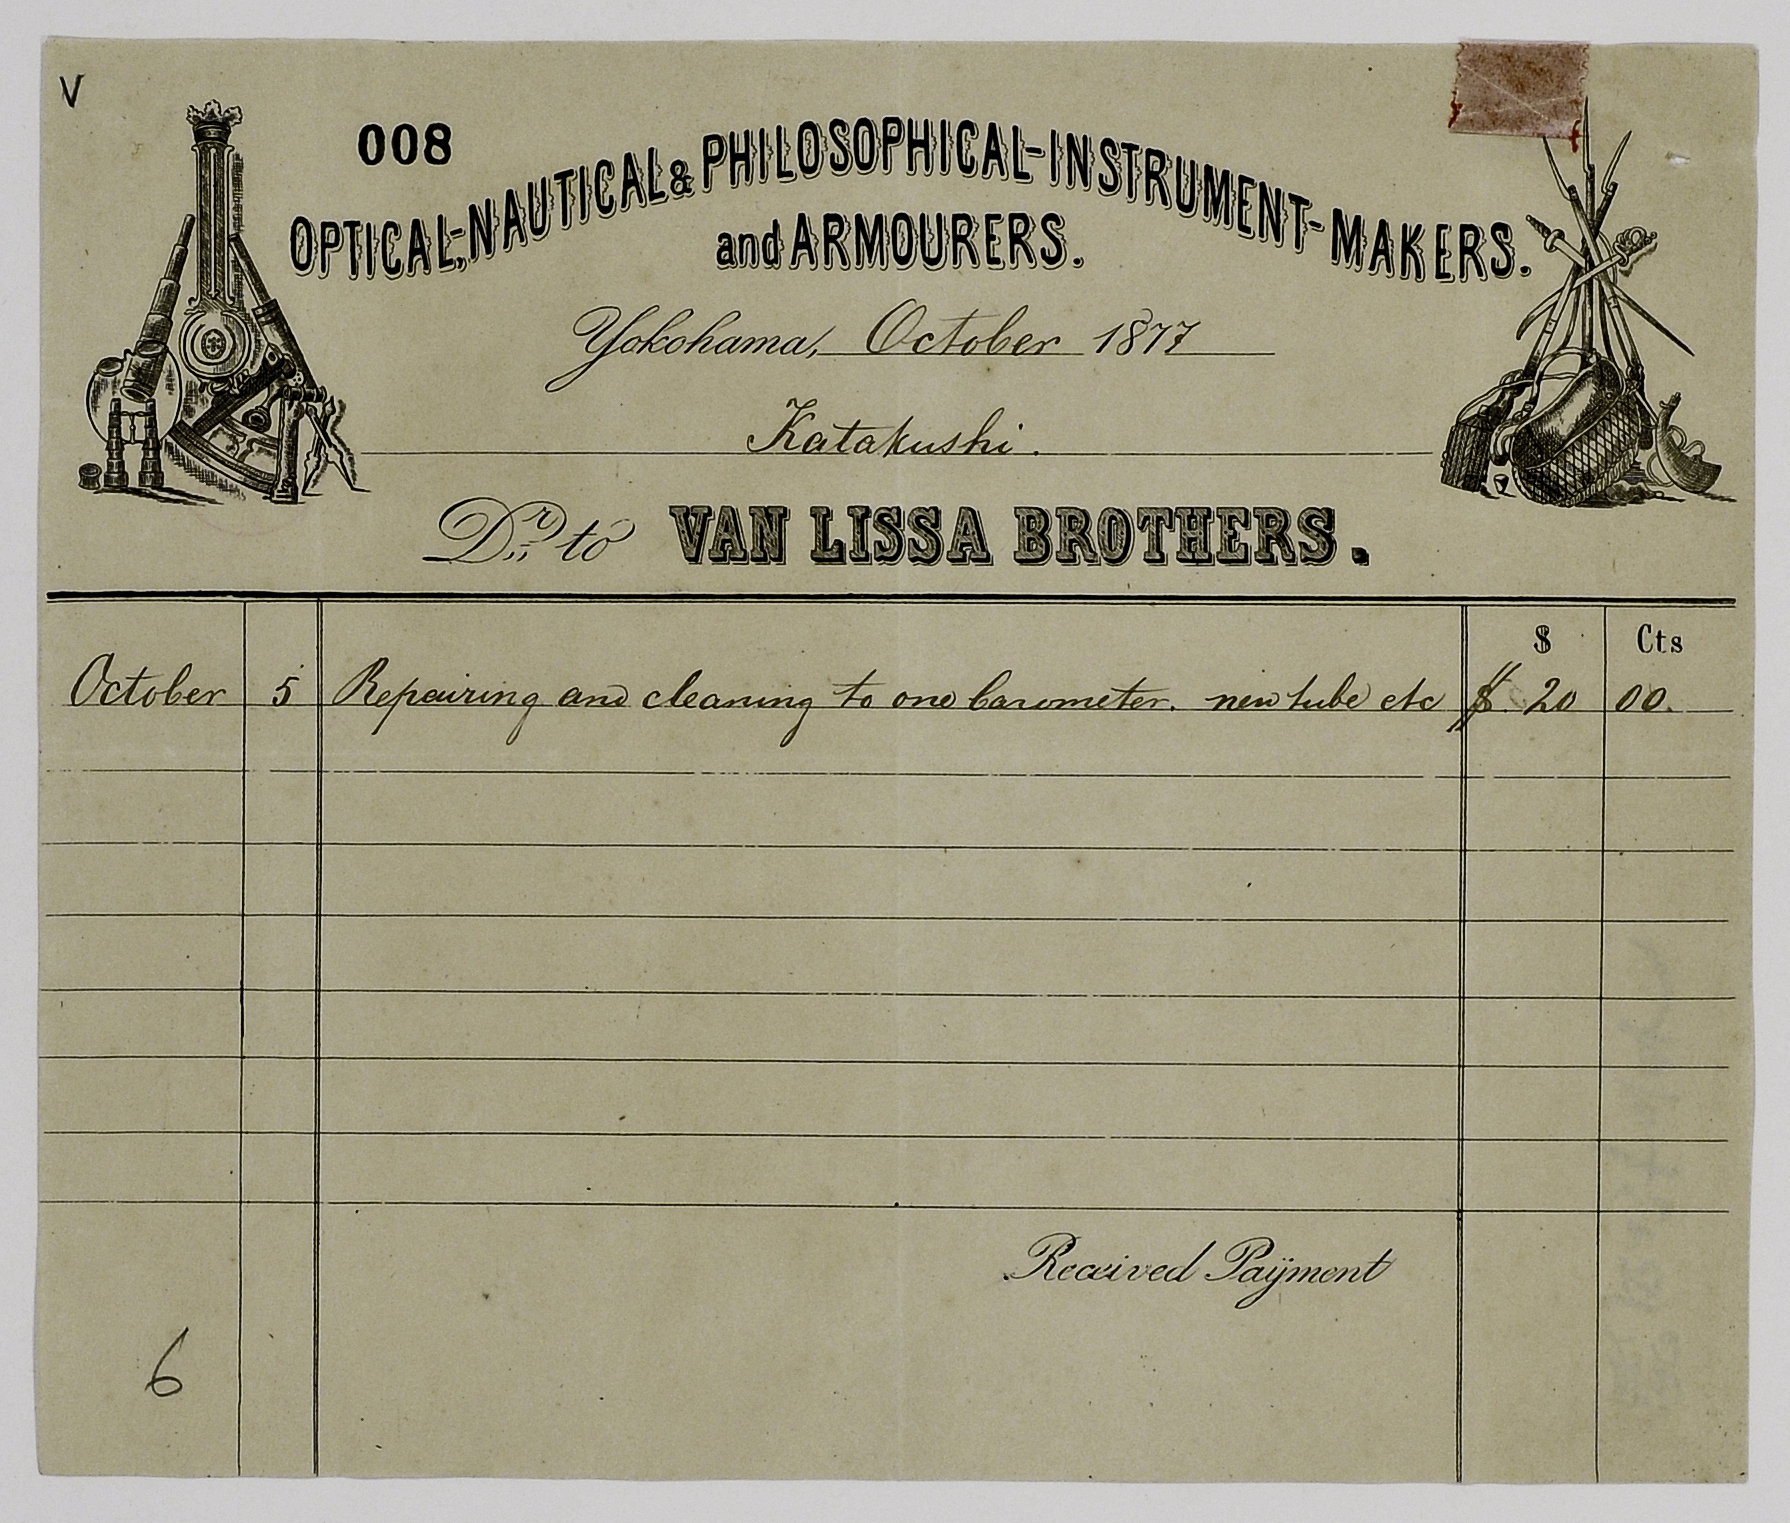 V
008
OPTICAL,-NAUTICAL & PHILOSOPHICAL-INSTRUMENT-MAKERS.
and ARMOURERS.
Yokohama, October 1877
Katakushi.
Dr. to VAN LISSA BROTHERS.
$ Cts
October 5 Repairing and cleaning to one barometer. new tube etc $ 20 00.
Received Payment
6